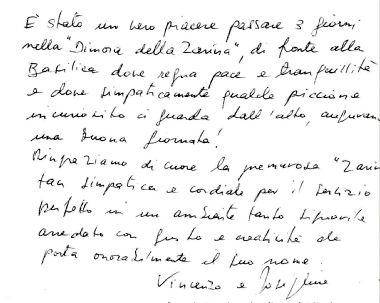 È stato un vero piacere passare 3 giorni
nella "Dimora della Zarina", di fronte alla
Basilica dove regna pace e tranquillità
e dove simpaticamente qualche piccione
incuriosito ci guarda dall'alto, auguran
una buona giornata!
Ringraziamo di cuore la premurosa "Zarin
tan simpatica e cordiale per il servizio
perfetto in un ambiente tanto signorile
arredato con gusto e creatività che
porta onorabilmente il suo nome.
Vincenzo e